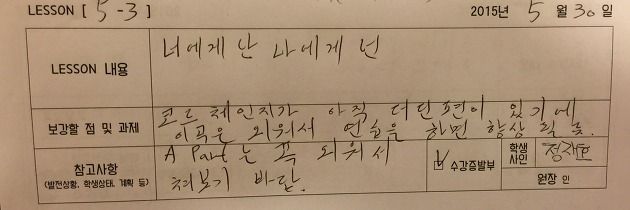 LESSON [ 5-3 ] 2015년 5 월 30 일
LESSON 내용
너에게 난 나에게 넌
보강할 점 및 과제
코드 체인지가 아직 더딘편이 있기에
이곡은 외워서 연습을 하면 향상 될 듯.
참고사항
(발전상황, 학생상태, 계획 등)
A Part는 꼭 외워서
쳐보기 바람.
수강증발부
학생
사인
원장 인